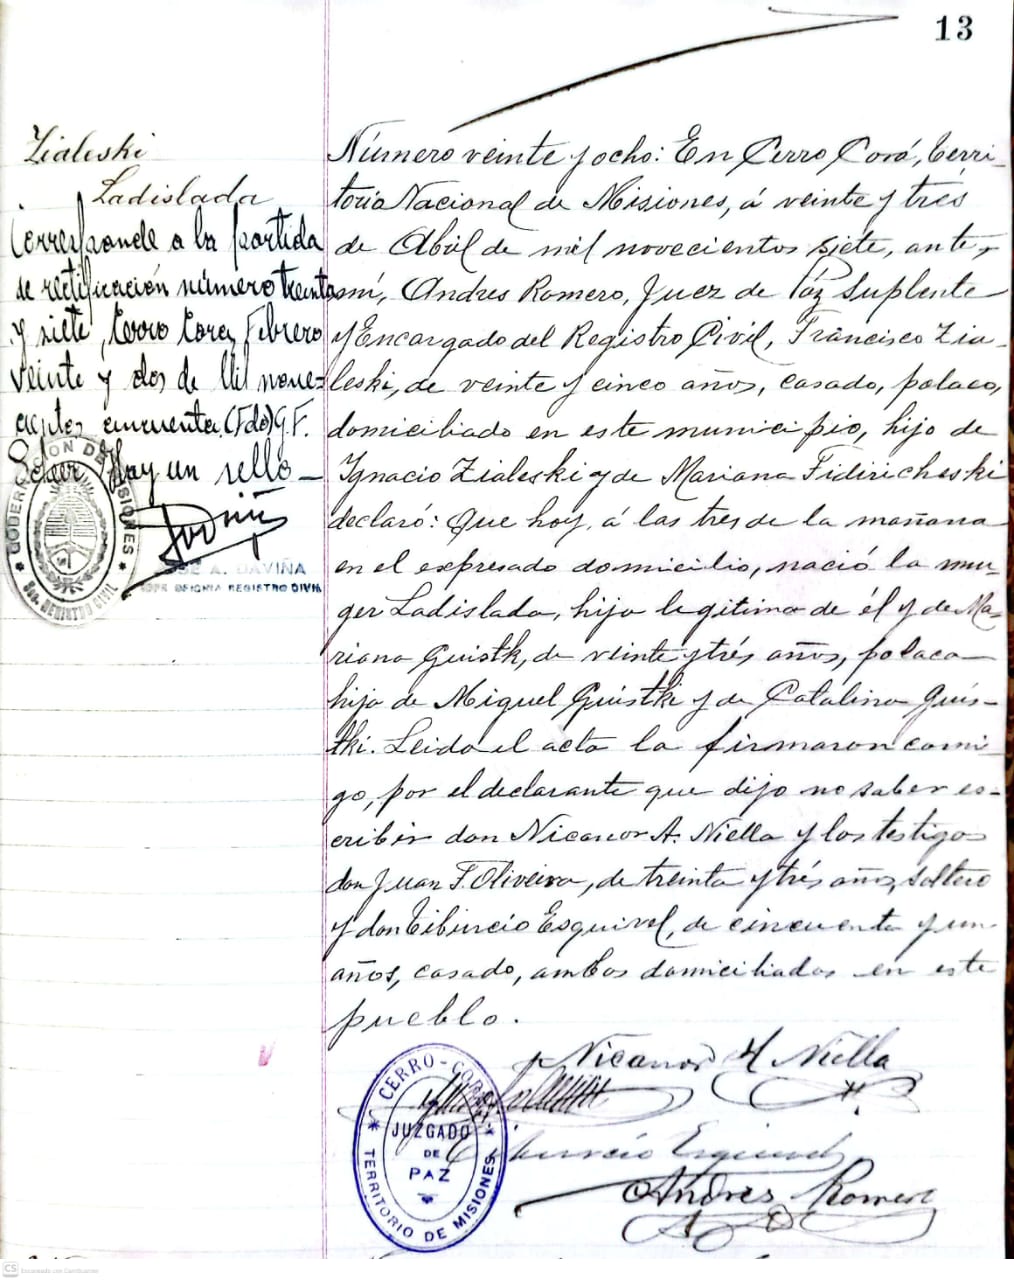 13
Zialeski
Ladislada
Corresponde a la partida
de rectificación número treinta
y siete, Cerro Corá, Febrero
veinte y dos de Mil nove-
cientos cincuenta. (Fdo) G. F.
Hay un sello —
GOBERNACION DE MISIONES
REGISTRO CIVIL
JOSE A. DAVIÑA
REGISTRO CIVIL
Número veinte y ocho: En Cerro Corá, Terri-
torio Nacional de Misiones, á veinte y trés
de Abril de mil novecientos siete, ante
mí, Andres Romero, Juez de Páz Suplente
y Encargado del Registro Civil, Francisco Zia-
leski, de veinte y cinco años, casado, polaco,
domiciliado en este municipio, hijo de
Ignacio Zialeski y de Mariana Fidiricheski
declaró: Que hoy, á las tres de la mañana
en el expresado domicilio, nació la mu-
ger Ladislada, hija legitima de él y de Ma-
riana Guistk, de veinte y trés años, polaca
hija de Miguel Guistki y de Catalina Guis-
tki. Leida el acta la firmaron conmi-
go, por el declarante que dijo no saber es-
cribir don Nicanor A. Niella y los testigos
don Juan F. Oliveira, de treinta y trés años, soltero
y don Tiburcio Esquivel, de cincuenta y un
años, casado, ambos domiciliados en este
pueblo.
Nicanor A Niella
Tiburcio Esquivel
Andres Romero
CERRO-CORÁ
JUZGADO
DE
PAZ
TERRITORIO DE MISIONES
CS Escaneado con CamScanner